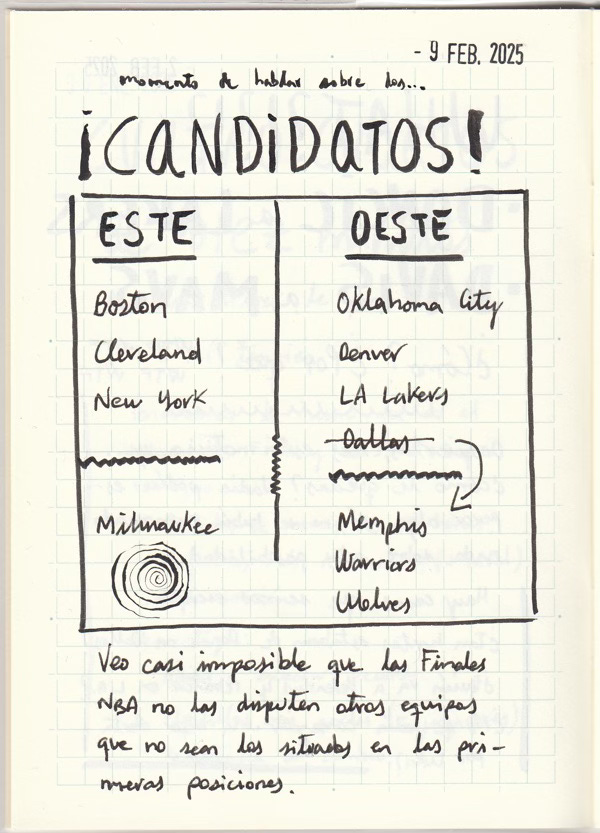 - 9 FEB. 2025
momento de hablar sobre los...
¡CANDIDATOS!
ESTE
Boston
Cleveland
New York
Milwaukee
OESTE
Oklahoma City
Denver
LA Lakers
Dallas
Memphis
Warriors
Wolves
Veo casi imposible que las Finales
NBA no las disputen otros equipos
que no sean los situados en las pri-
meras posiciones.